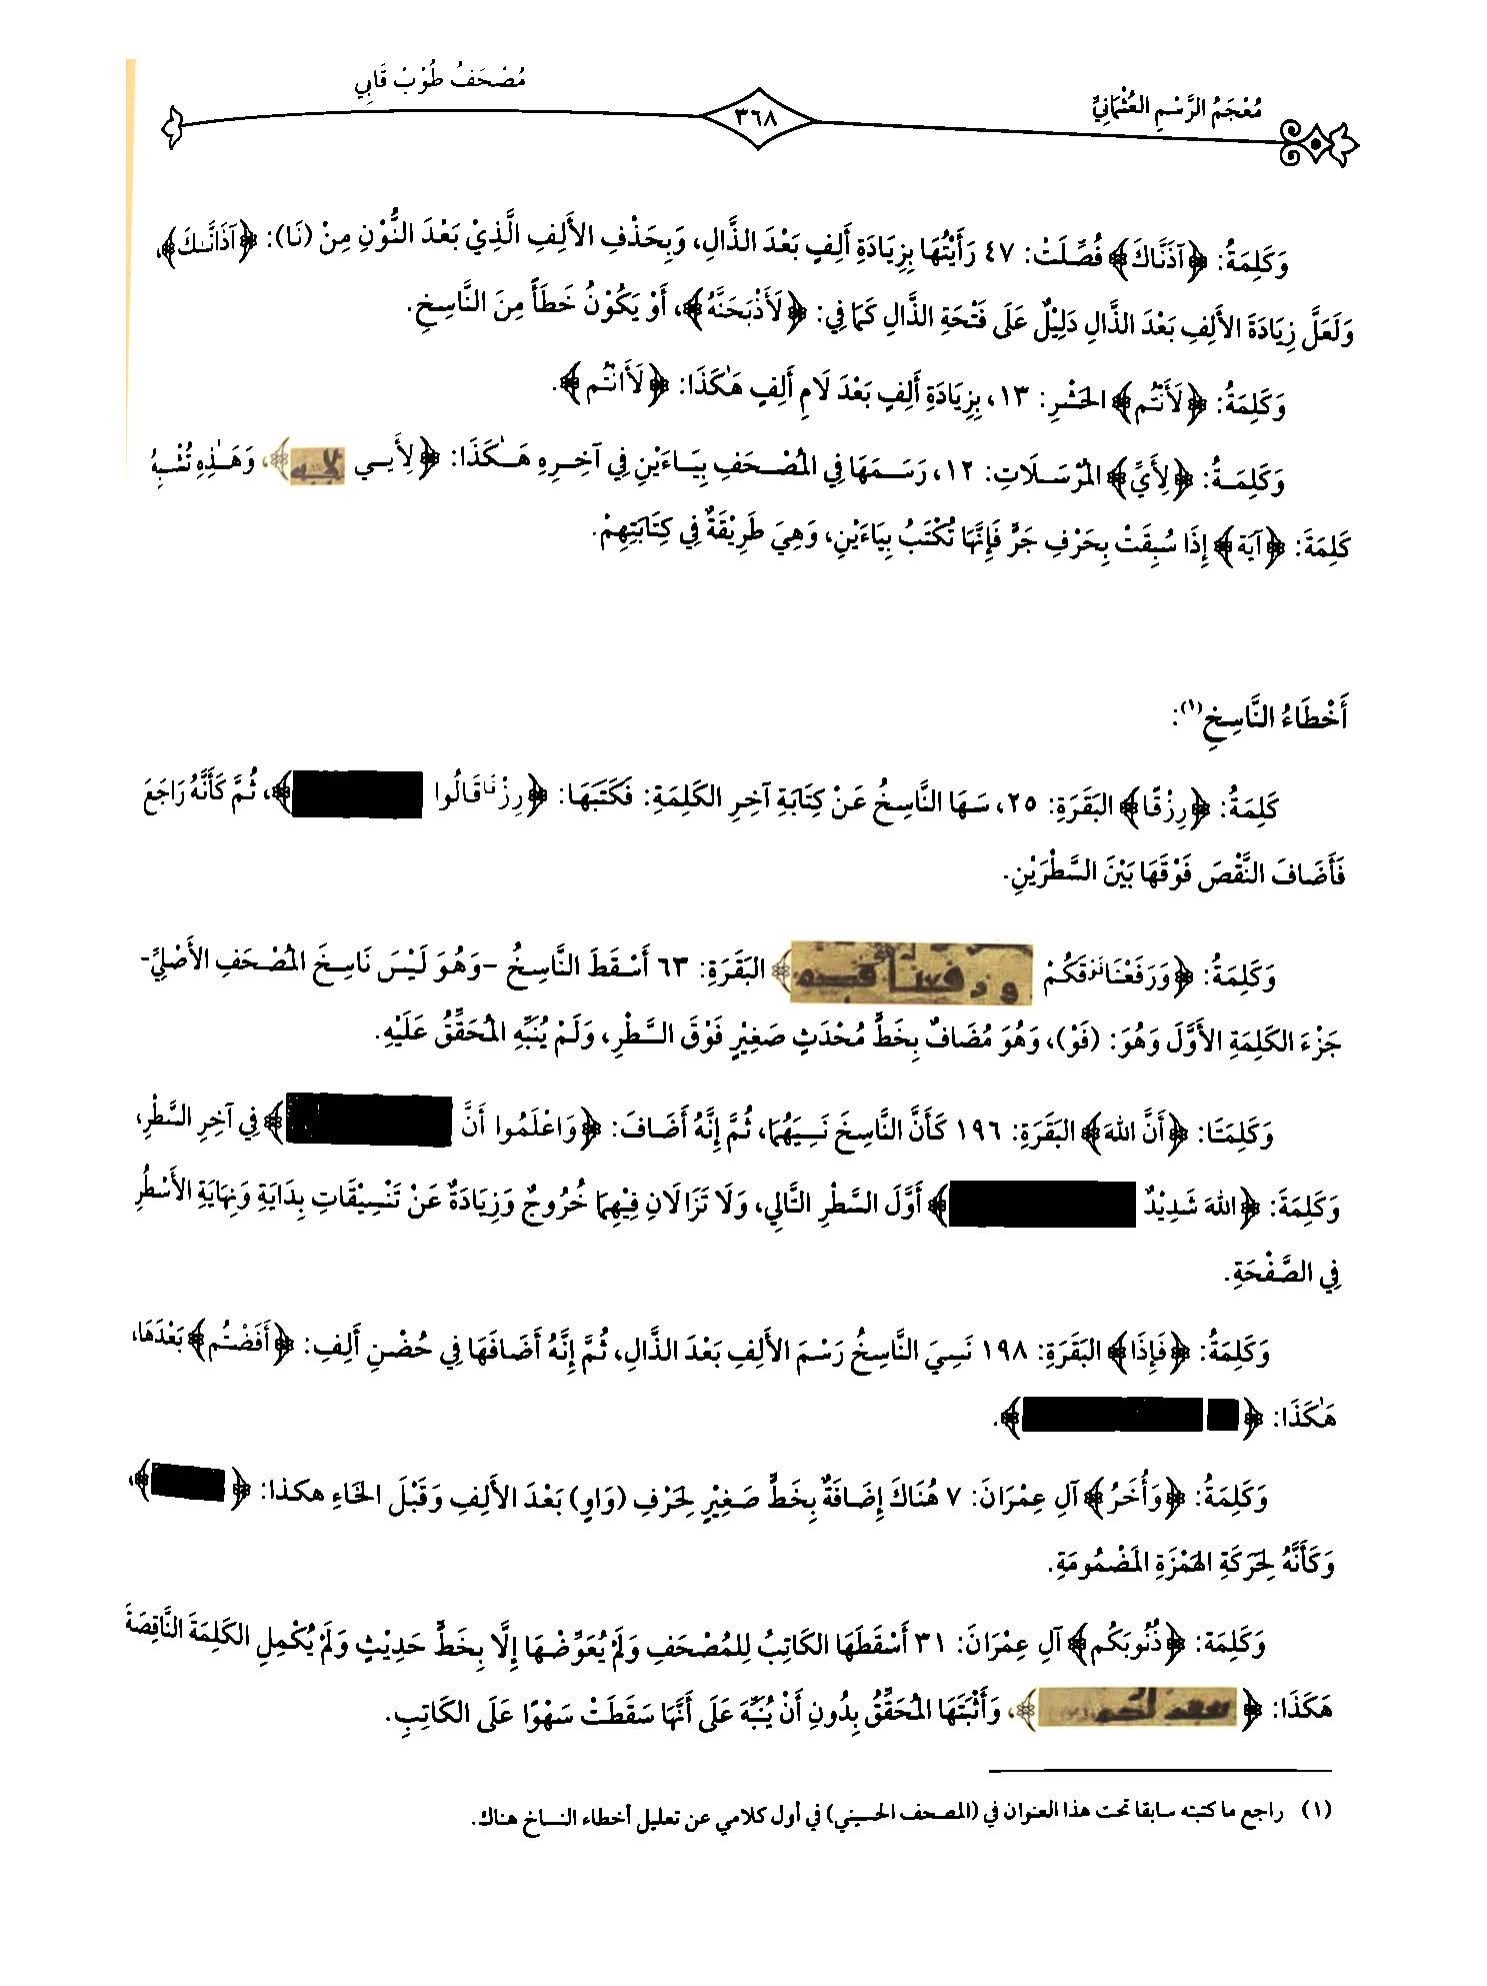 مُعْجَمُ الرَّسْمِ العُثْمَانِيِّ
٣٦٨
مُصْحَفُ طُوْبْ قَابِي
وَكَلِمَةُ: ﴿آذَنَّاكَ﴾ فُصِّلَتْ: ٤٧ رَأَيْتُهَا بِزِيَادَةِ أَلِفٍ بَعْدَ الذَّالِ، وَبِحَذْفِ الأَلِفِ الَّذِيْ بَعْدَ النُّوْنِ مِنْ (نَا): ﴿آذَانَّكَ﴾،
وَلَعَلَّ زِيَادَةَ الأَلِفِ بَعْدَ الذَّالِ دَلِيْلٌ عَلَى فَتْحَةِ الذَّالِ كَمَا فِي: ﴿لَأَذْبَحَنَّهُ﴾، أَوْ يَكُوْنُ خَطَأً مِنَ النَّاسِخِ.
وَكَلِمَةُ: ﴿لَأَنْتُم﴾ الحَشْرِ: ١٣، بِزِيَادَةِ أَلِفٍ بَعْدَ لَامِ أَلِفٍ هَٰكَذَا: ﴿لَأَانْتُم﴾.
وَكَلِمَةُ: ﴿لِأَيِّ﴾ المُرْسَلَاتِ: ١٢، رَسَمَهَا فِي المُصْحَفِ بِيَاءَيْنِ فِي آخِرِهِ هَٰكَذَا: ﴿لِأَيي ﴾، وَهَٰذِهِ تُشْبِهُ
كَلِمَةَ: ﴿آيَة﴾ إِذَا سُبِقَتْ بِحَرْفِ جَرٍّ فَإِنَّهَا تُكْتَبُ بِيَاءَيْنِ، وَهِيَ طَرِيْقَةٌ فِي كِتَابَتِهِمْ.
أَخْطَاءُ النَّاسِخِ(١):
كَلِمَةُ: ﴿رِزْقًا﴾ البَقَرَةِ: ٢٥، سَهَا النَّاسِخُ عَنْ كِتَابَةِ آخِرِ الكَلِمَةِ: فَكَتَبَهَا: ﴿رِزْقَا قَالُوا ﴾، ثُمَّ كَأَنَّهُ رَاجَعَ
فَأَضَافَ النَّقْصَ فَوْقَهَا بَيْنَ السَّطْرَيْنِ.
وَكَلِمَةُ: ﴿وَرَفَعْنَا فَوْقَكُمْ ﴾ البَقَرَةِ: ٦٣ أَسْقَطَ النَّاسِخُ -وَهُوَ لَيْسَ نَاسِخَ المُصْحَفِ الأَصْلِيِّ-
جَزْءَ الكَلِمَةِ الأَوَّلَ وَهُوَ: (فَوْ)، وَهُوَ مُضَافٌ بِخَطٍّ مُحْدَثٍ صَغِيْرٍ فَوْقَ السَّطْرِ، وَلَمْ يُنَبِّهِ المُحَقِّقُ عَلَيْهِ.
وَكَلِمَتَا: ﴿أَنَّ اللهَ﴾ البَقَرَةِ: ١٩٦ كَأَنَّ النَّاسِخَ نَسِيَهُمَا، ثُمَّ إِنَّهُ أَضَافَ: ﴿وَاعْلَمُوا أَنَّ ﴾ فِي آخِرِ السَّطْرِ،
وَكَلِمَةَ: ﴿اللهَ شَدِيْدُ ﴾ أَوَّلَ السَّطْرِ التَّالِي، وَلَا تَزَالَانِ فِيْهِمَا خُرُوجٌ وَزِيَادَةٌ عَنْ تَنْسِيْقَاتِ بِدَايَةِ وَنِهَايَةِ الأَسْطُرِ
فِي الصَّفْحَةِ.
وَكَلِمَةُ: ﴿فَإِذَا﴾ البَقَرَةِ: ١٩٨ نَسِيَ النَّاسِخُ رَسْمَ الأَلِفِ بَعْدَ الذَّالِ، ثُمَّ إِنَّهُ أَضَافَهَا فِي حُضْنِ أَلِفِ: ﴿أَفَضْتُم﴾ بَعْدَهَا،
هَٰكَذَا: ﴿ ﴾.
وَكَلِمَةُ: ﴿وَأُخَرُ﴾ آلِ عِمْرَانَ: ٧ هُنَاكَ إِضَافَةٌ بِخَطٍّ صَغِيْرٍ لِحَرْفِ (وَاوٍ) بَعْدَ الأَلِفِ وَقَبْلَ الخَاءِ هكذا: ﴿ ﴾،
وَكَأَنَّهُ لِحَرَكَةِ الهَمْزَةِ المَضْمُومَةِ.
وَكَلِمَة: ﴿ذُنُوبَكُم﴾ آلِ عِمْرَانَ: ٣١ أَسْقَطَهَا الكَاتِبُ لِلمُصْحَفِ وَلَمْ يُعَوِّضْهَا إِلَّا بِخَطٍّ حَدِيْثٍ وَلَمْ يُكْمِلِ الكَلِمَةَ النَّاقِصَةَ
هَكَذَا: ﴿ ﴾، وَأَثْبَتَهَا المُحَقِّقُ بِدُونِ أَنْ يُنَبِّهَ عَلَى أَنَّهَا سَقَطَتْ سَهْوًا عَلَى الكَاتِبِ.
(١) راجع ما كتبته سابقا تحت هذا العنوان في (المصحف الحسيني) في أول كلامي عن تعليل أخطاء النساخ هناك.